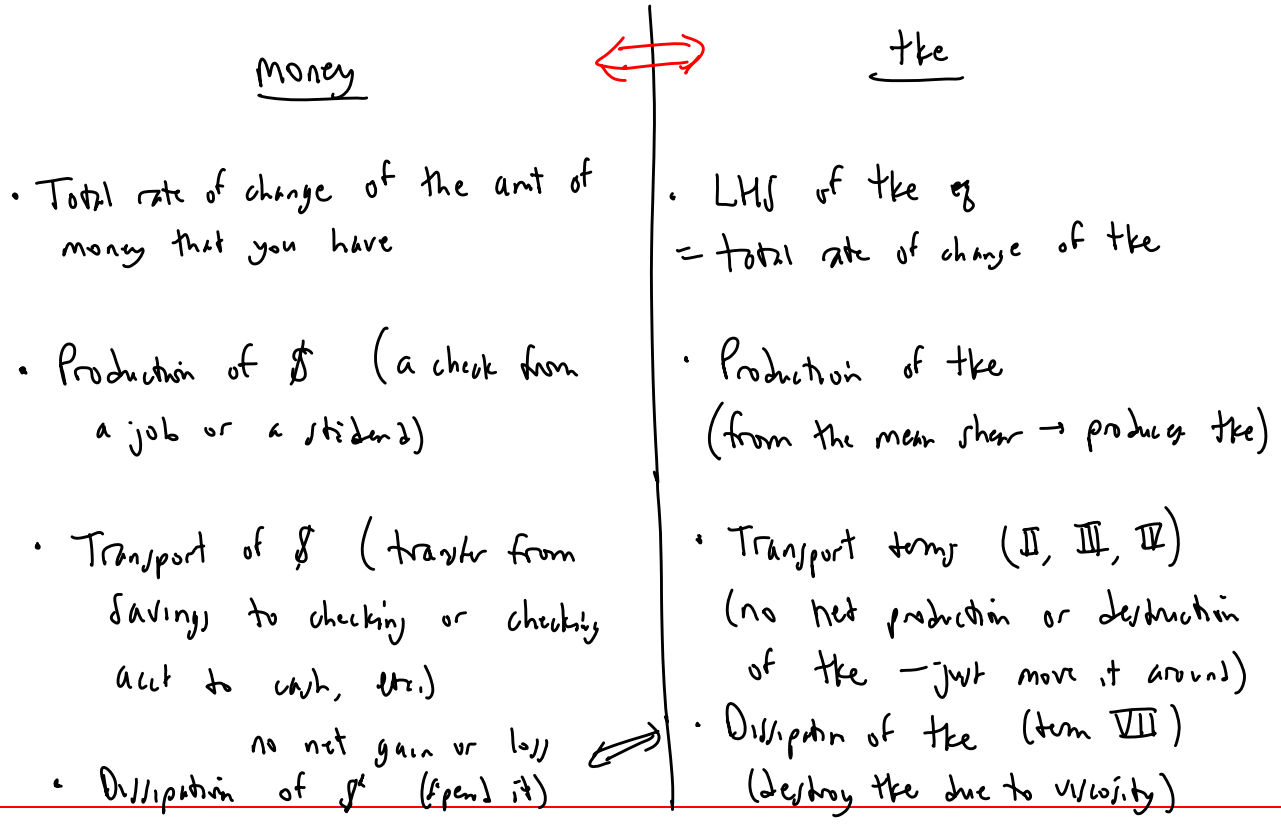 money
• Total rate of change of the amt of
money that you have
• Production of $ (a check from
a job or a stidend)
• Transport of $ (transfer from
savings to checking or checking
acct to cash, etc.)
no net gain or loss
• Dissipation of $ (spend it)
tke
• LHS of tke eq
= total rate of change of tke
• Production of tke
(from the mean shear → produces tke)
• Transport terms (II, III, IV)
(no net production or destruction
of tke — just move it around)
• Dissipation of tke (term VII)
(destroy tke due to viscosity)